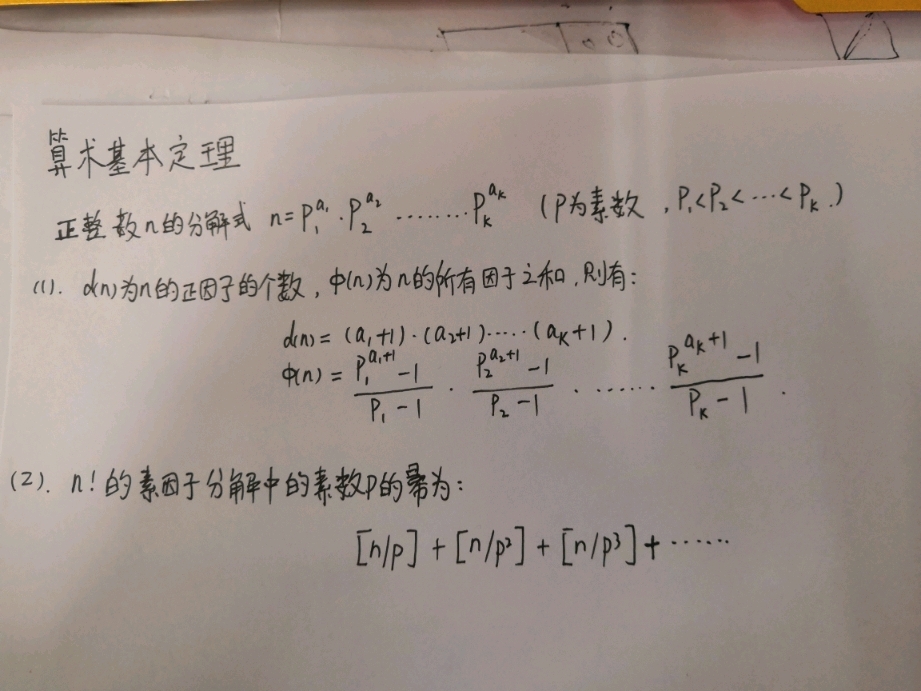 算术基本定理
正整数n的分解式 n=P₁^{a₁}·P₂^{a₂}········P_k^{a_k} (P为素数,P₁<P₂<···<P_k.)
(1). d(n)为n的正因子的个数,φ(n)为n的所有因子之和,则有:
d(n)=(a₁+1)·(a₂+1)·····(a_k+1).
φ(n)=\frac{P₁^{a₁+1}-1}{P₁-1}·\frac{P₂^{a₂+1}-1}{P₂-1}·······\frac{P_k^{a_k+1}-1}{P_k-1}.
(2). n!的素因子分解中的素数P的幂为:
[n/p]+[n/p²]+[n/p³]+······